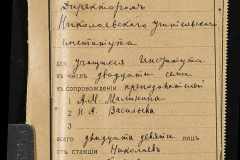 Директоромъ
Николаевскаго учительскаго
института
для учащихся Института
въ числѣ двадцати семи
въ сопровожденіи преподавателей
А.М. Малинина
2 И.А. Васильева
3
всего двадцать девять лицъ
отъ станціи Николаевъ